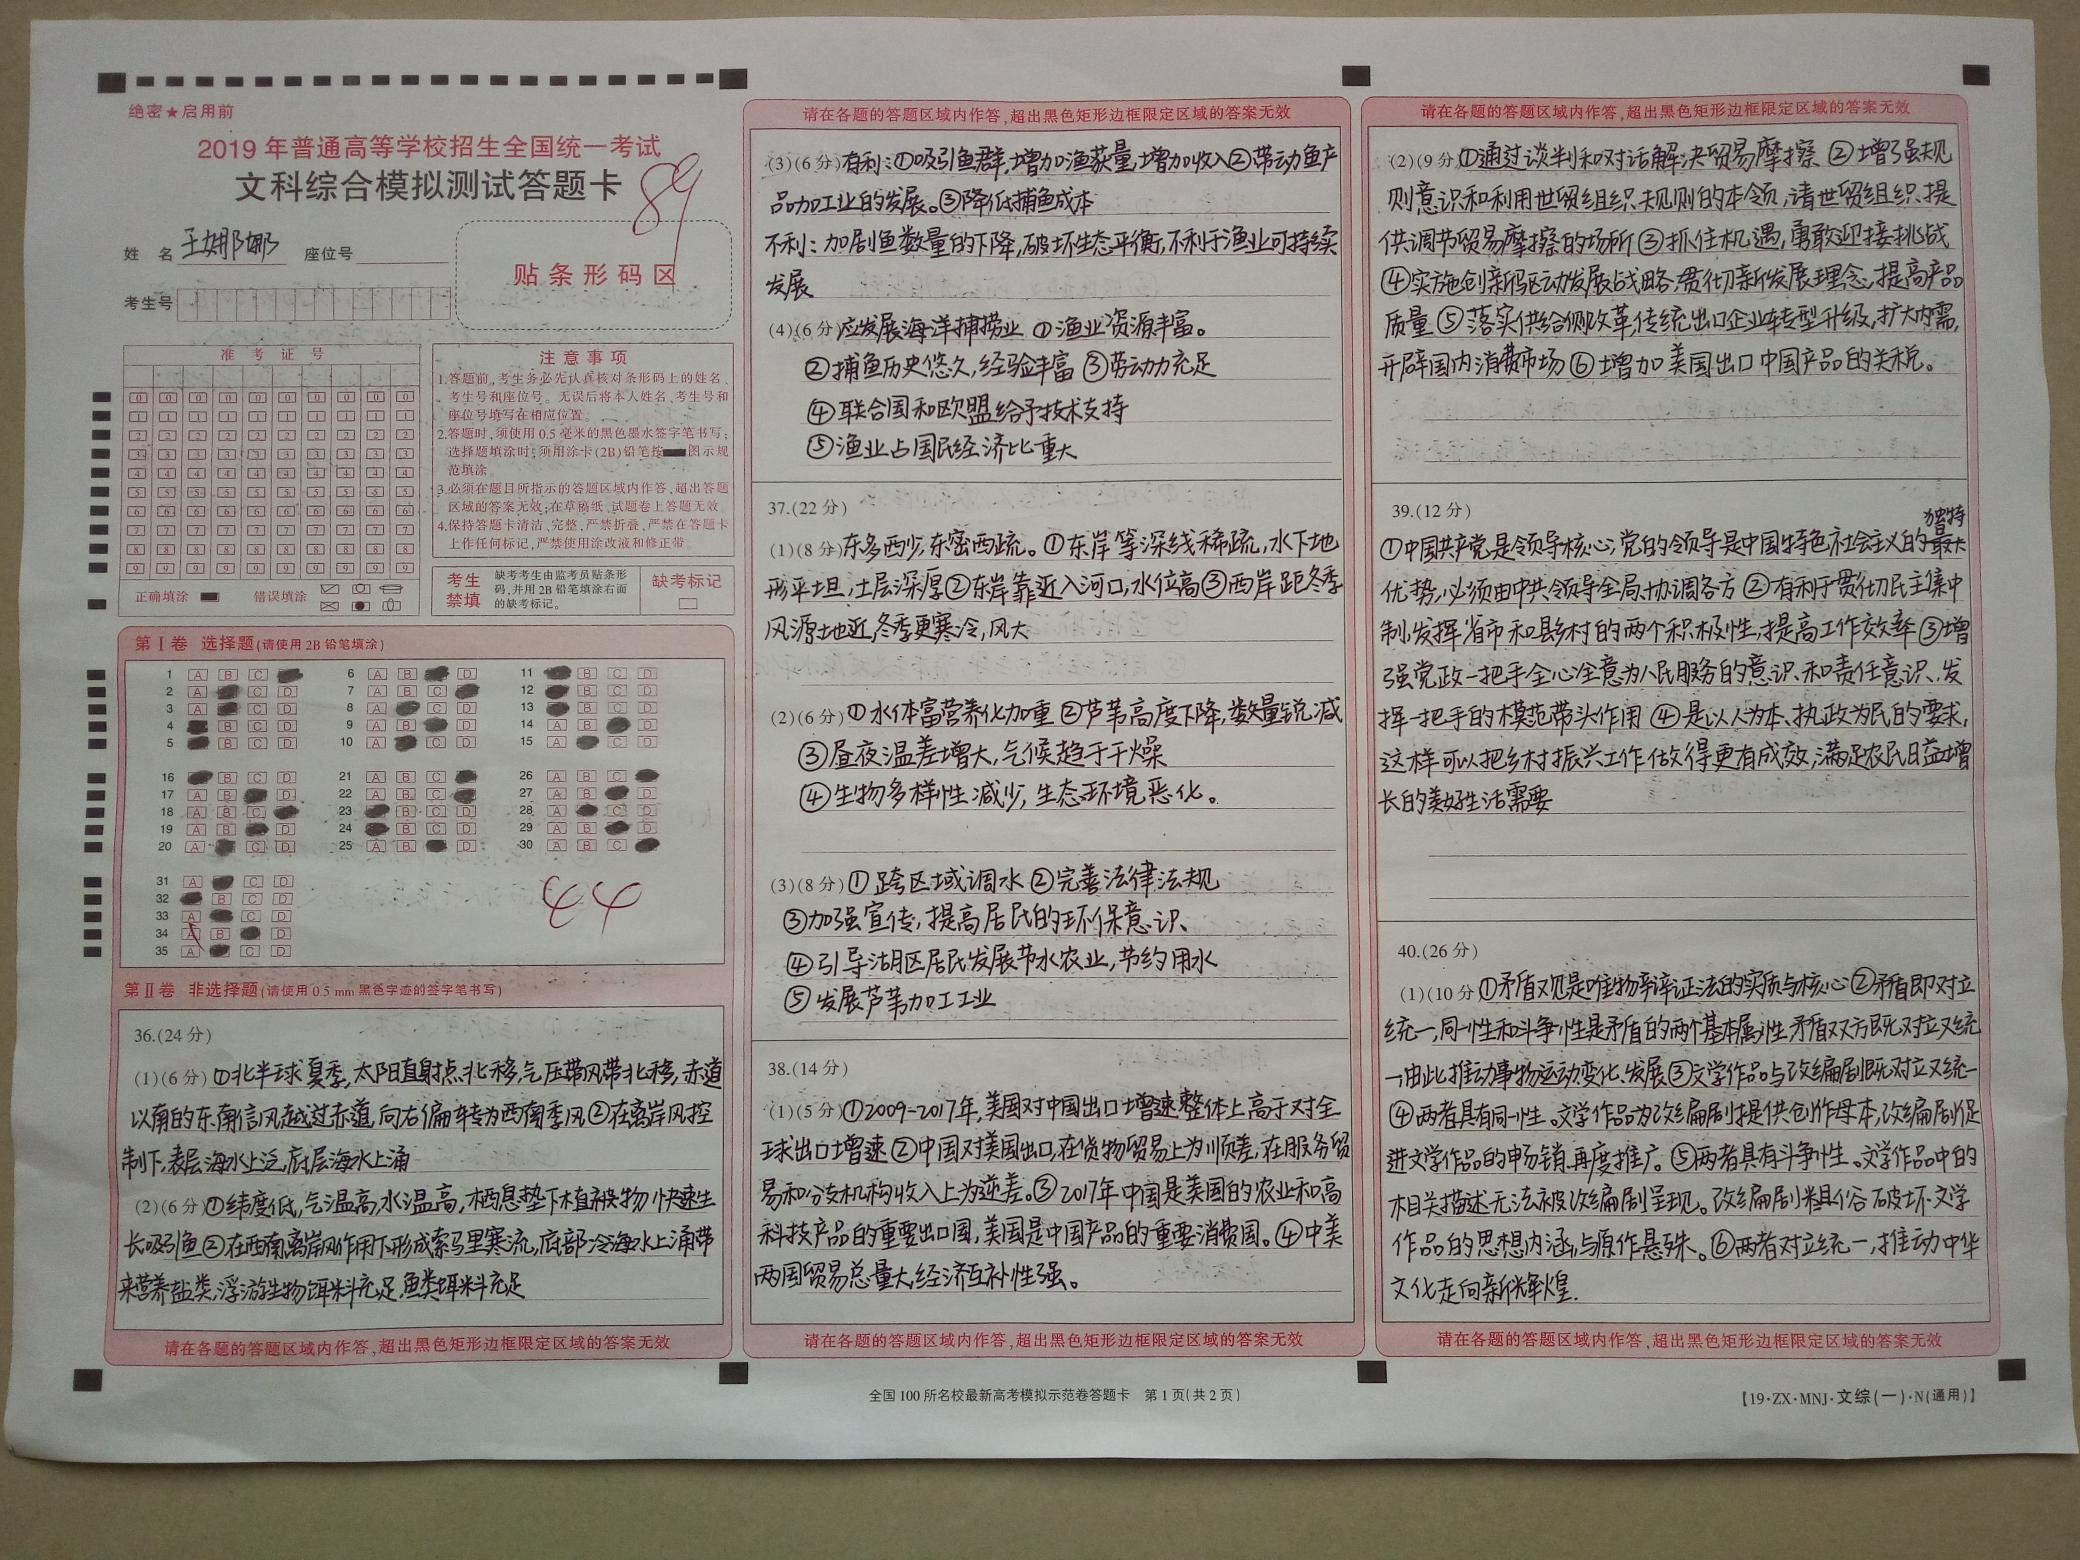 绝密★启用前
2019年普通高等学校招生全国统一考试
文科综合模拟测试答题卡
89
姓 名 王娜娜 座位号
贴条形码区
考生号
准考证号
注意事项
1.答题前,考生务必先认真核对条形码上的姓名、
考生号和座位号。无误后将本人姓名、考生号和
座位号填写在相应位置。
2.答题时,须使用0.5毫米的黑色墨水签字笔书写;
选择题填涂时,须用涂卡(2B)铅笔按 图示规
范填涂。
3.必须在题目所指示的答题区域内作答,超出答题
区域的答案无效;在草稿纸、试题卷上答题无效。
4.保持答题卡清洁、完整,严禁折叠,严禁在答题卡
上作任何标记,严禁使用涂改液和修正带。
正确填涂 错误填涂
考生
禁填
缺考考生由监考员贴条形
码,并用2B铅笔填涂右面
的缺考标记。
缺考标记
第Ⅰ卷 选择题(请使用2B铅笔填涂)
1 6 11
2 7 12
3 8 13
4 9 14
5 10 15
16 21 26
17 22 27
18 23 28
19 24 29
20 25 30
31
32
33
34
35
44
第Ⅱ卷 非选择题(请使用0.5mm黑色字迹的签字笔书写)
36.(24分)
(1)(6分)①北半球夏季,太阳直射点北移,气压带风带北移,赤道
以南的东南信风越过赤道,向右偏转为西南季风②在离岸风控
制下,表层海水上泛,底层海水上涌
(2)(6分)①纬度低,气温高,水温高,栖息垫下植被物快速生
长吸引鱼②在西南离岸风作用下形成索马里寒流,底部冷海水上涌带
来营养盐类,浮游生物饵料充足,鱼类饵料充足
请在各题的答题区域内作答,超出黑色矩形边框限定区域的答案无效
请在各题的答题区域内作答,超出黑色矩形边框限定区域的答案无效
(3)(6分)有利:①吸引鱼群,增加渔获量,增加收入②带动鱼产
品加工业的发展。③降低捕鱼成本
不利:加剧鱼数量的下降,破坏生态平衡,不利于渔业可持续
发展
(4)(6分)应发展海洋捕捞业 ①渔业资源丰富。
②捕鱼历史悠久,经验丰富 ③劳动力充足
④联合国和欧盟给予技术支持
⑤渔业占国民经济比重大
37.(22分)
(1)(8分)东多西少,东密西疏。①东岸等深线稀疏,水下地
形平坦,土层深厚②东岸靠近入河口,水位高③西岸距冬季
风源地近,冬季更寒冷,风大
(2)(6分)①水体富营养化加重②芦苇高度下降,数量锐减
③昼夜温差增大,气候趋于干燥
④生物多样性减少,生态环境恶化。
(3)(8分)①跨区域调水②完善法律法规
③加强宣传,提高居民的环保意识、
④引导湖区居民发展节水农业,节约用水
⑤发展芦苇加工工业
38.(14分)
(1)(5分)①2009-2017年,美国对中国出口增速整体上高于对全
球出口增速②中国对美国出口,在货物贸易上为顺差,在服务贸
易和分支机构收入上为逆差。③2017年中国是美国的农业和高
科技产品的重要出口国,美国是中国产品的重要消费国。④中美
两国贸易总量大,经济互补性强。
请在各题的答题区域内作答,超出黑色矩形边框限定区域的答案无效
请在各题的答题区域内作答,超出黑色矩形边框限定区域的答案无效
(2)(9分)①通过谈判和对话解决贸易摩擦 ②增强规
则意识和利用世贸组织规则的本领,请世贸组织提
供调节贸易摩擦的场所③抓住机遇,勇敢迎接挑战
④实施创新驱动发展战略,贯彻新发展理念,提高产品
质量⑤落实供给侧改革,传统出口企业转型升级,扩大内需,
开辟国内消费市场⑥增加美国出口中国产品的关税。
39.(12分)
独特
①中国共产党是领导核心,党的领导是中国特色社会主义的最大
优势,必须由中共领导全局,协调各方②有利于贯彻民主集中
制,发挥省市和县乡村的两个积极性,提高工作效率③增
强党政一把手全心全意为人民服务的意识和责任意识、发
挥一把手的模范带头作用④是以人为本、执政为民的要求,
这样可以把乡村振兴工作做得更有成效,满足农民日益增
长的美好生活需要
40.(26分)
(1)(10分)①矛盾观是唯物辩证法的实质与核心②矛盾即对立
统一,同一性和斗争性是矛盾的两个基本属性,矛盾双方既对立又统
一,由此推动事物运动、变化、发展③文学作品与改编剧既对立又统一
④两者具有同一性。文学作品为改编剧提供创作母本,改编剧促
进文学作品的畅销,再度推广。⑤两者具有斗争性。文学作品中的
相关描述无法被改编剧呈现。改编剧粗俗破坏文学
作品的思想内涵,与原作悬殊。⑥两者对立统一,推动中华
文化走向新辉煌.
请在各题的答题区域内作答,超出黑色矩形边框限定区域的答案无效
全国100所名校最新高考模拟示范卷答题卡 第1页(共2页)
【19·ZX·MNJ·文综(一)·N(通用)】